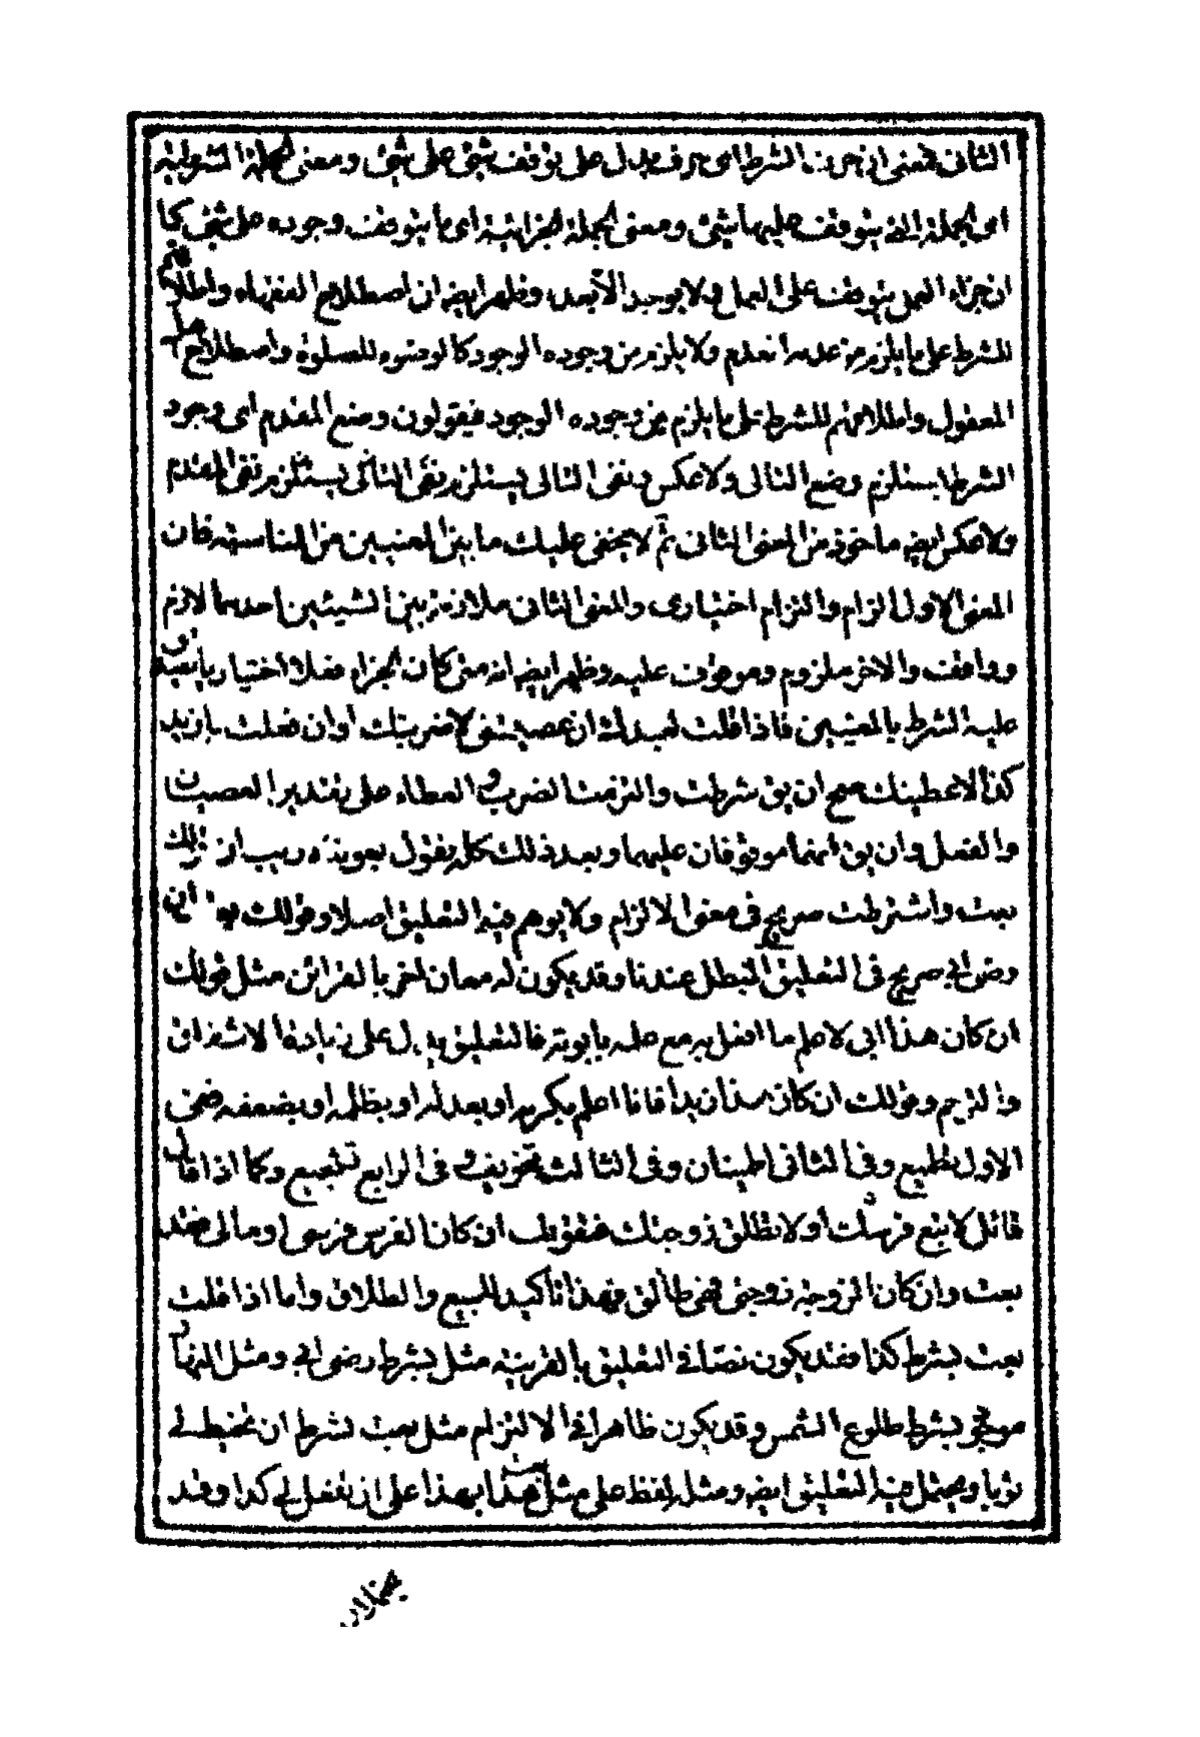 الثانى فمعنى ان حرف الشرط اى حرف يدل على توقف شئ على شئ ومعنى الجملة الشرطية
اى الجملة التى يتوقف عليها شئ ومعنى الجملة الجزائية اى ما يتوقف وجوده على شئ كما
ان جزاء العمل يتوقف على العمل ولا يوجد الا بعده وظهر ايضه ان اصطلاح الفقهاء واطلاقهم
للشرط على ما يلزم من عدمه العدم ولا يلزم من وجوده الوجود كالوضوء للصلوة واصطلاح اهل
المعقول واطلاقهم للشرط على ما يلزم من وجوده الوجود فيقولون وضع المقدم اى وجود
الشرط يستلزم وضع التالى ولا عكس ونفى التالى يستلزم نفى المقدم
ولا عكس ايضه ماخوذ من المعنى الثانى ثم لا يخفى عليك ما بين المعنيين من المناسبة فان
المعنى الاول الزام والتزام اختيارى والمعنى الثانى ملازمة بين الشيئين احدهما لازم
وواقف والاخر ملزوم وموقوف عليه وظهر ايضه انه متى كان الجزاء فعلا اختياريا يصدق
عليه الشرط بالمعنيين فاذا قلت لعبدك ان عصيتنى لاضربنك او ان فعلت يا زيد
كذا لاعطينك صح ان يق شرطت والتزمت الضرب والعطاء على تقدير العصيان
والفعل وان يق انهما موقوفان عليهما وبعد ذلك كله نقول بعون الله لا ريب ان قولك
بعت واشترطت صريح فى معنى الالزام ولا يوهم فيه التعليق اصلا وقولك بعت ان
رضى ابى صريح فى التعليق المبطل عندنا وقد يكون له معان اخر بالقرائن مثل قولك
ان كان هذا ابى لاعلم ما افعل به مع علمه بابوته فالتعليق يدل على زيادة الاشفاق
والترحم وقولك ان كان سلطان بلد فانا اعلم يكرمه او يعدله او يظلمه او يضعفه ففى
الاول تطميع وفى الثانى اطمينان وفى الثالث تخويف وفى الرابع تشجيع وكما اذا قال
قائل لا تبع فرسك او لا تطلق زوجتك فتقول ان كان الفرس فرسى او مالى فقد
بعت وان كان الزوجة زوجتى فهى طالق فهذا تاكيد للبيع والطلاق واما اذا قلت
بعت بشرط كذا فقد يكون نصا فى التعليق بالقرينة مثل بشرط رضى ابى ومثل النهار
موجود بشرط طلوع الشمس وقد يكون ظاهرا فى الالتزام مثل بعت بشرط ان تخيط لى
ثوبا ويحتمل فيه التعليق ايضه ومثله لفظ على مثل بعت هذا بهذا على ان تفعل لى كذا وقد
يحتملان